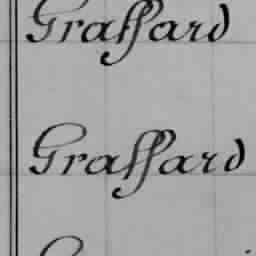 Graffard
Graffard